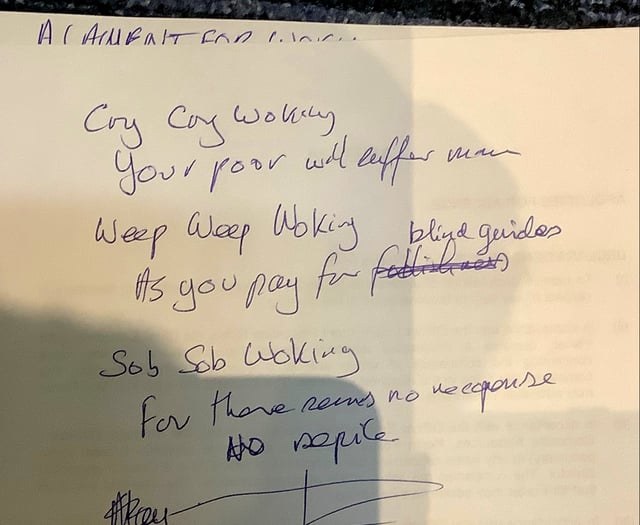 A LAMENT FOR
Cry Cry Woking
Your poor will suffer
Weep Weep Woking
blind guides
As you pay for
Sob Sob Woking
For there seems no response
No